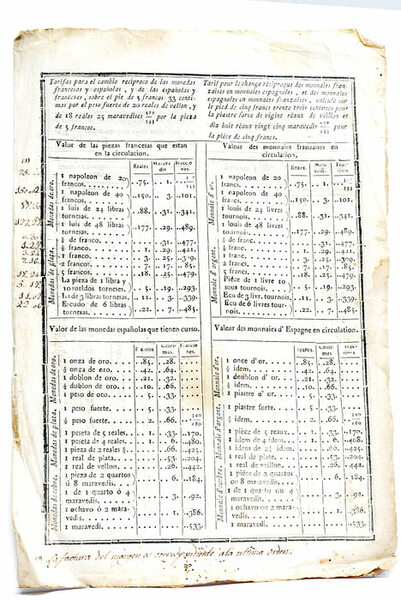 Tarifas para el cambio reciproco de las monedas
francesas y españolas, y de las españolas y
francesas, sobre el pie de 5 francos 33 centi-
mas por el peso fuerte de 20 reales de vellon, y
de 18 reales 25 maravedises por la pieza
de 5 francos.
Tarif pour le change réciproque des monnaies fran-
çaises en monnaies espagnoles, et des monnaies
espagnoles en monnaies françaises, calculé sur
le pied de cinq francs trente trois centimes pour
la piastre forte de vingte réaux de veillon et
dix huit réaux vingt cinq maravedis pour
la pièce de cinq francs.
Valor de las piezas francesas que estan
en la circulacion.
Reales.
Monedas de oro.
1 napoleon de 20
francos. .75. .1.
1 napoleon de 40
francos. .150. .3. .101.
1 luis de 24 libras
tornesas. .88. .31. .341.
1 luis de 48 libras
tornesas. .177. .29. .489.
Monedas de plata.
¼ de franco. .31. .477.
½ franco. 1. .29. .421.
1 franco. 3. .25. .309.
2 francos. 7. .17. .85.
5 francos. .18. .25. .479.
La pieza de 1 libra y
10 sueldos torneses. 5. .19. .293.
La de 3 libras tornesas. .11. 3. .339.
Escudo de 6 libras
tornesas. .22. 7. .485.
Valeur des monnaies françaises en
circulation.
Reaux.
Monnaie d'or.
1 napoleon de 20
francs. .75. .1.
1 napoleon de 40
francs. .150. .3. .101.
1 louis de 24 livres
tournois. .88. .31. .341.
1 louis de 48 livres
tournois. .177. .29. .489.
Monnaie d'argent.
¼ de franc. .31. .477.
½ franc. 1. .29. .421.
1 franc. 3. .25. .309.
2 francs. 7. .17. .85.
5 francs. .18. .25. .479.
Pièce de 1 livre 10
sous tournois. 5. .19. .293.
Ecu de 3 livr. tournois. .11. 3. .339.
Ecu de 6 livres
tournois. .22. 7. .485.
Valor de las monedas españolas que tienen curso.
Francos
Monedas de oro.
1 onza de oro. .85. .28.
½ onza de oro. .42. .64.
1 doblon de oro. .21. .32.
½ doblon de oro. .10. .66.
1 peso de oro. 5. .33.
Monedas de plata.
1 peso fuerte. 5. .33.
½ peso fuerte. 2. .66.
1 peseta de 5 reales. 1. .33. .170.
1 peseta de 4 reales. 1. 6. .408.
1 pieza de 2 reales ½. .66. .425.
1 real de plata. .53. .204.
1 real de vellon. .26. .442.
Monedas de cobre.
1 pieza de 2 quartos
ú 8 maravedis. 6. .184.
1 de 1 quarto ó 4
maravedis. 3. .92.
1 ochavo ó 2 marave-
dis. 1. .386.
1 maravedi. .533.
Valeur des monnaies d'Espagne en circulation.
Francs.
Monnaie d'or.
1 once d'or. .85. .28.
½ idem. .42. .64.
1 doublhon d'or. .21. .32.
½ idem. .10. .66.
1 piastre d'or. 5. .33.
Monnaie d'argent.
1 piastre forte. 5. .33.
½ idem. 2. .66.
1 pièce de 5 reaux. 1. .33. .170.
1 idem de 4 idem. 1. 6. .408.
1 idem de 2½ idem. .66. .425.
1 real de plata. .53. .204.
1 real de vreillon. .26. .442.
Monnaie de cuivre.
1 pièce de 2 quartos
ou 8 maravedis. 6. .184.
1 de 1 quarto ou 4
maravedis. 3. .92.
1 ochavo ou 2 mara-
vedis. 1. .386.
1 maravedi. .533.